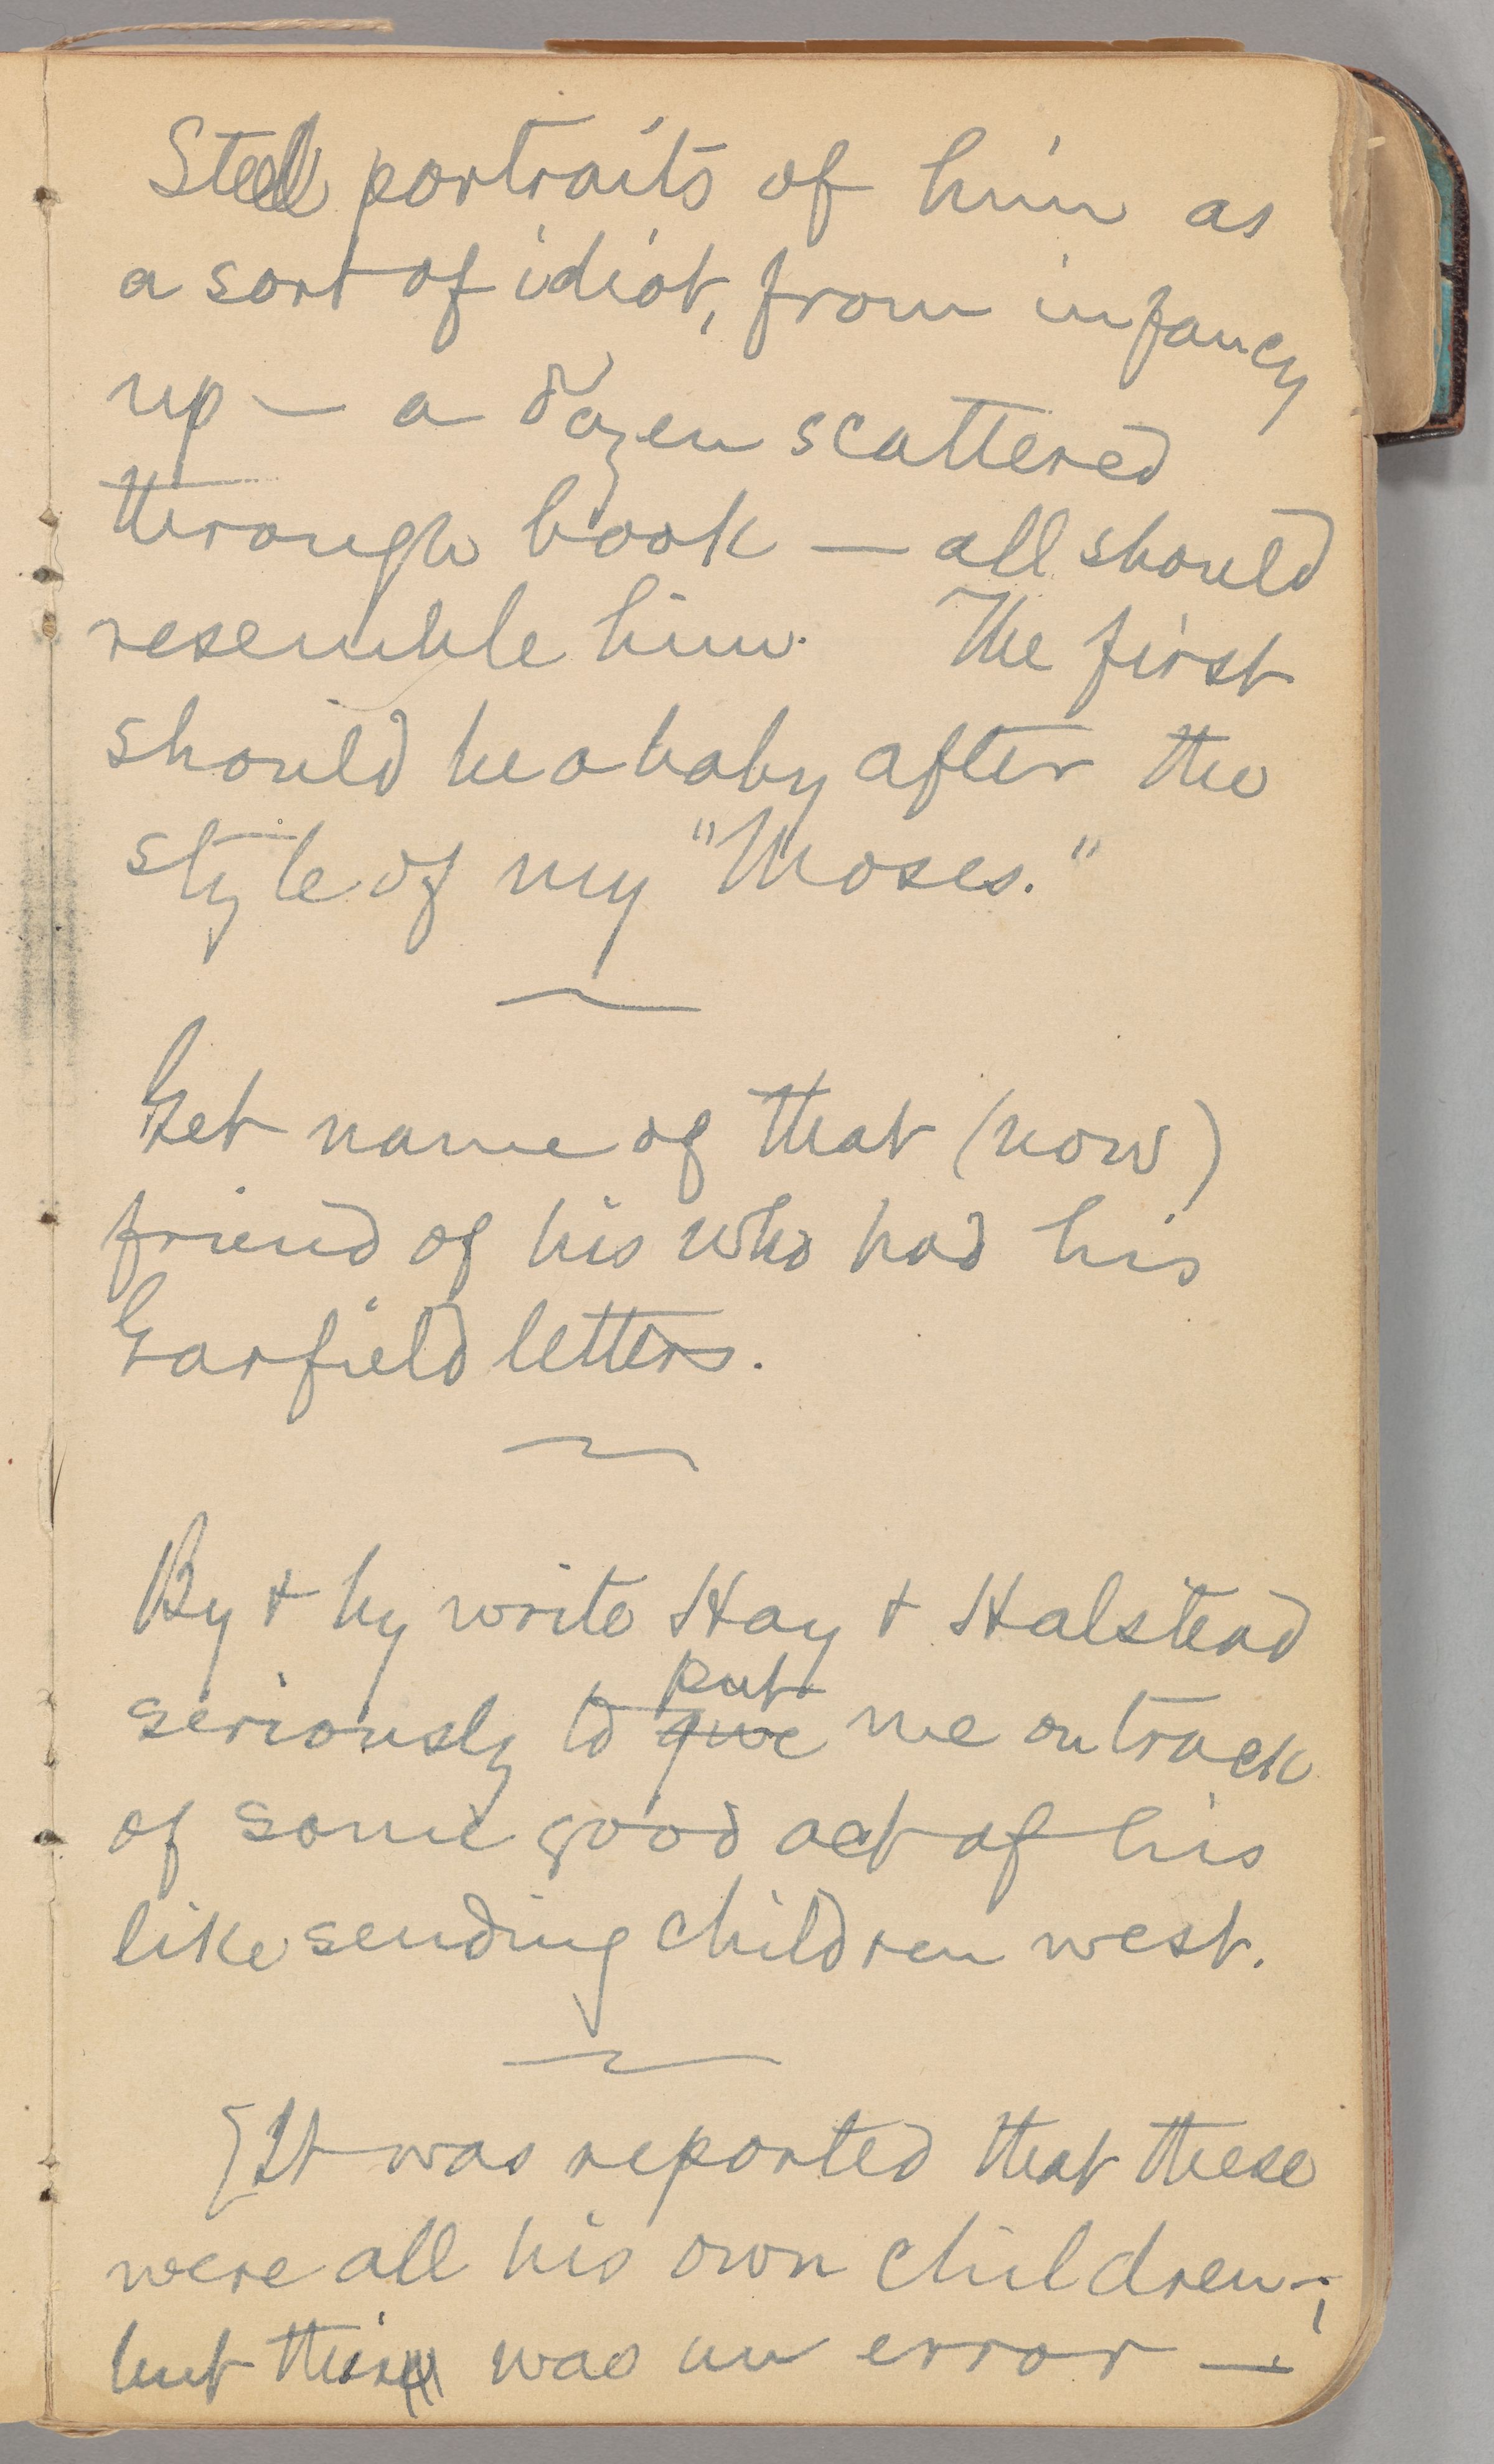 Steel portraits of him as
a sort of idiot, from infancy
up — a dozen scattered
through book — all should
resemble him. The first
should be a baby after the
style of my "Moses."
Get name of that (now)
friend of his who had his
Garfield letters.
By & by write Hay & Halstead
seriously to give put me on track
of some good act of his
like sending children west.
[It was reported that these
were all his own children—;
but this was an error —